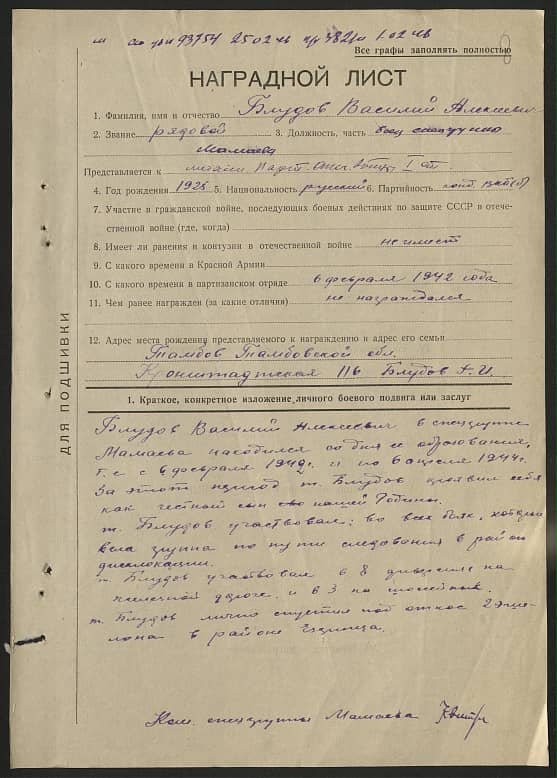 93754 25.02 1.02
Все графы заполнять полностью
НАГРАДНОЙ ЛИСТ
1. Фамилия, имя и отчество Блудов Василий Алексеевич
2. Звание рядовой 3. Должность, часть боец спецгруппы
Мамаева
Представляется к медали Парт. Отеч. войны I ст.
4. Год рождения 5. Национальность русский 6. Партийность канд. ВКП(б)
7. Участие в гражданской войне, последующих боевых действиях по защите СССР и отече-
ственной войне (где, когда)
8. Имеет ли ранения и контузии в отечественной войне не имеет
9. С какого времени в Красной Армии
10. С какого времени в партизанском отряде 6 февраля 1942 года
11. Чем ранее награжден (за какие отличия) не награждался
12. Адрес места рождения представляемого к награждению и адрес его семьи
Тамбов Тамбовской обл.
Кронштадтская 116 Блудов А. И.
ДЛЯ ПОДШИВКИ
1. Краткое, конкретное изложение личного боевого подвига или заслуг
Блудов Василий Алексеевич в спецгруппе
Мамаева находился со дня ее образования,
т.е. с 6 февраля 1942г. и по 6 апреля 1944г.
За этот период т. Блудов проявил себя
как честный сын своей Родины.
т. Блудов участвовал: во всех боях, которые
вела группа по пути следования в район
дислокации.
т. Блудов участвовал в 8 диверсиях на
железной дороге и в 3 на шоссейных.
т. Блудов лично спустил под откос 2 эше-
лона в районе
Ком. спецгруппы Мамаева